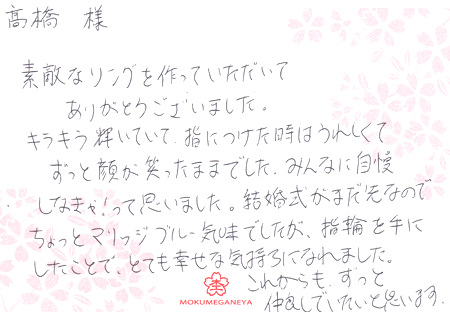 高橋 様
素敵なリングを作っていただいて
ありがとうございました。
キラキラ輝いていて、指につけた時はうれしくて
ずっと顔が笑ったままでした。みんなに自慢
しなきゃ!って思いました。結婚式がまだ先なので
ちょっとマリッジブルー気味でしたが、指輪を手に
したことで、とても幸せな気持ちになれました。
これからも、ずっと
仲良しでいたいと思います。
MOKUMEGANEYA